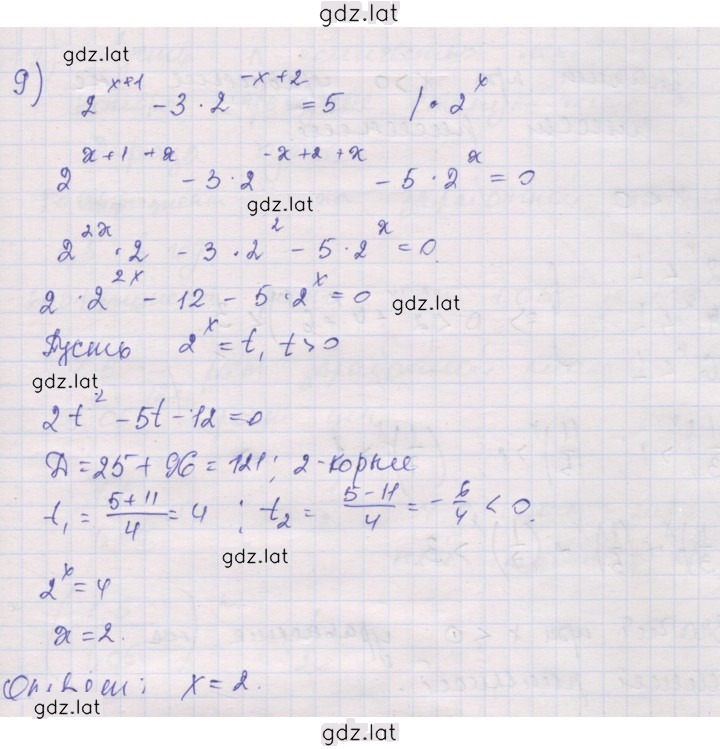 gdz.lat
gdz.lat
9) 2^{x+1} - 3 · 2^{-x+2} = 5 | · 2^x
2^{x+1+x} - 3 · 2^{-x+2+x} - 5 · 2^x = 0
gdz.lat
2^{2x} · 2 - 3 · 2^2 - 5 · 2^x = 0.
2 · 2^{2x} - 12 - 5 · 2^x = 0
gdz.lat
Пусть 2^x = t, t > 0
gdz.lat
2t^2 - 5t - 12 = 0
Д = 25 + 96 = 121; 2-корня
t_1 = \frac{5+11}{4} = 4 ; t_2 = \frac{5-11}{4} = -\frac{6}{4} < 0.
gdz.lat
2^x = 4
x = 2.
Ответ: x = 2.
gdz.lat
gdz.lat